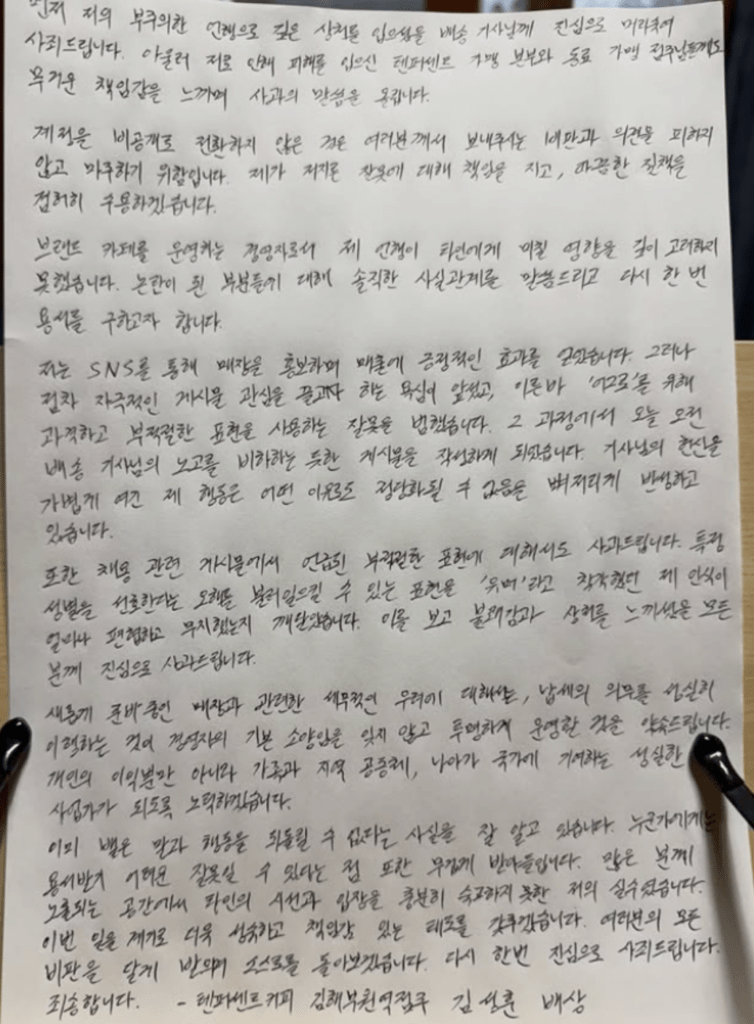 먼저 저의 부주의한 언행으로 깊은 상처를 입으셨을 배송 기사님께 진심으로 머리숙여
사죄드립니다. 아울러 저로 인해 피해를 입으신 텐퍼센트 가맹 본부와 동료 가맹 점주님들께도
무거운 책임감을 느끼며 사과의 말씀을 올립니다.
계정을 비공개로 전환하지 않은 것은 여러분께서 보내주시는 비판과 의견을 피하지
않고 마주하기 위함입니다. 제가 저지른 잘못에 대해 책임을 지고, 따끔한 질책을
겸허히 수용하겠습니다.
브랜드 카페를 운영하는 경영자로서 제 언행이 타인에게 미칠 영향을 깊이 고려하지
못했습니다. 논란이 된 부분들에 대해 솔직한 사실관계를 말씀드리고 다시 한 번
용서를 구하고자 합니다.
저는 SNS를 통해 매장을 홍보하며 매출에 긍정적인 효과를 얻었습니다. 그러나
점차 자극적인 게시물 관심을 끌고자 하는 욕심이 앞섰고, 이른바 '어그로'를 위해
과격하고 부적절한 표현을 사용하는 잘못을 범했습니다. 그 과정에서 오늘 오전
배송 기사님의 노고를 비하하는 듯한 게시물을 작성하게 되었습니다. 기사님의 헌신을
가볍게 여긴 제 행동은 어떤 이유로도 정당화될 수 없음을 뼈저리게 반성하고
있습니다.
또한 채용 관련 게시물에서 언급된 부적절한 표현에 대해서도 사과드립니다. 특정
성별을 선호한다는 오해를 불러일으킬 수 있는 표현을 '유머'라고 착각했던 제 인식이
얼마나 편협하고 무지했는지 깨달았습니다. 이를 보고 불쾌감과 상처를 느끼셨을 모든
분께 진심으로 사과드립니다.
새롭게 준비중인 매장과 관련한 세무적인 우려에 대해서는, 납세의 의무를 성실히
이행하는 것이 경영자의 기본 소양임을 잊지 않고 투명하게 운영할 것을 약속드립니다.
개인의 이익뿐만 아니라 가족과 지역 공동체, 나아가 국가에 기여하는 성실한
사업가가 되도록 노력하겠습니다.
이미 뱉은 말과 행동을 되돌릴 수 없다는 사실을 잘 알고 있습니다. 누군가에게는
용서받기 어려운 잘못일 수 있다는 점 또한 무겁게 받아들입니다. 많은 분께
노출되는 공간에서 타인의 시선과 입장을 충분히 숙고하지 못한 저의 실수였습니다.
이번 일을 계기로 더욱 성숙하고 책임감 있는 태도를 갖추겠습니다. 여러분의 모든
비판을 달게 받으며 스스로를 돌아보겠습니다. 다시 한번 진심으로 사죄드립니다.
죄송합니다. - 텐퍼센트커피 김해부원역점주 김성훈 배상